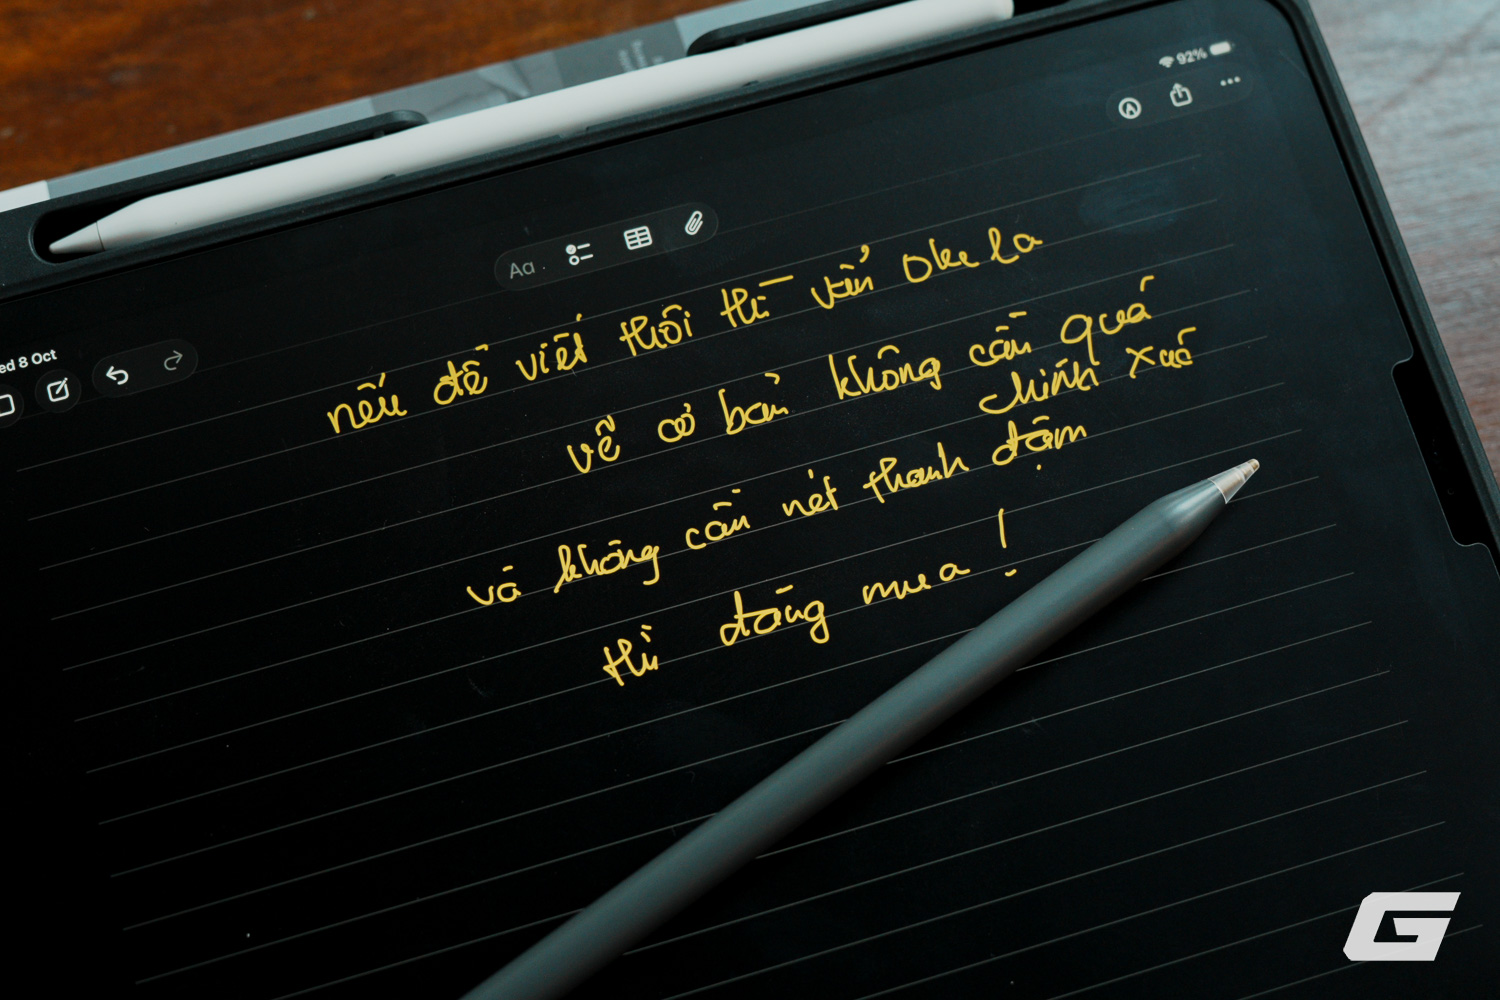 92%
Aa
ed 8 Oct
nếu để viết thôi thì vẫn oke la
vẽ cơ bản không cần quá
chính xác
và không cần nét thanh đậm
thì đáng mua!
G